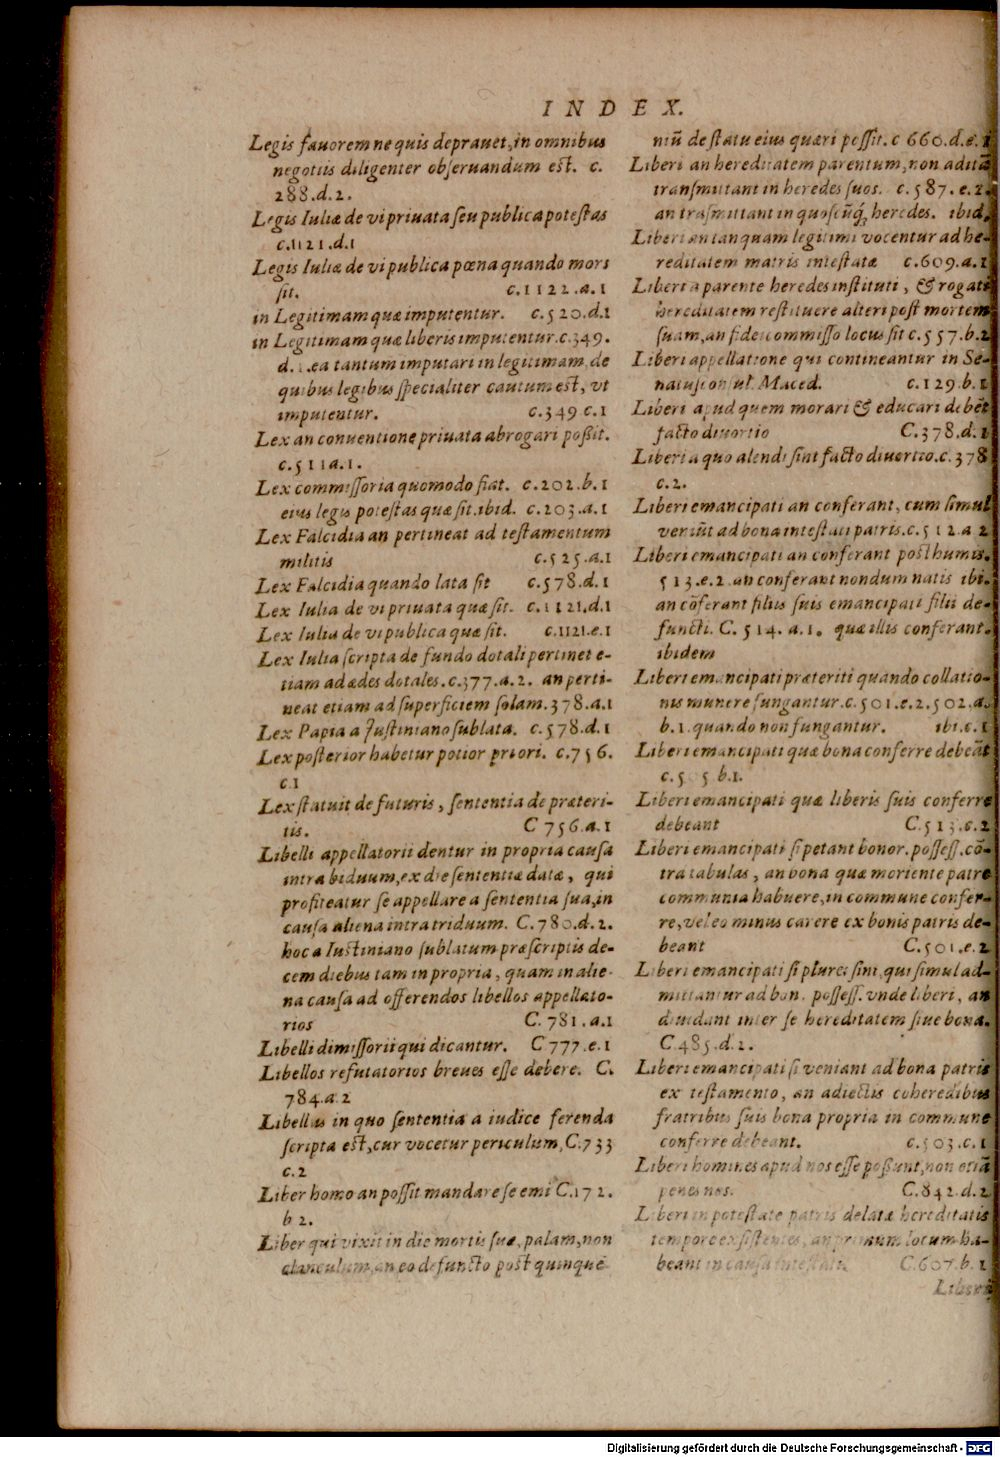 INDEX.
Legis fauorem ne quis deprauet, in omnibus
negotiis diligenter obſeruandum est. c.
288.d.2.
Legis Iuliæ de vi priuata ſeu publica poteſtas
c.1121.d.1
Legis Iuliæ de vi publica pœna quando mors
ſit. c.1122.a.1
in Legitimam quæ imputentur. c.520.d.1
in Legitimam quæ liberis imputentur.c.349.
d. .ea tantum imputari in legitimam, de
quibus legibus ſpecialiter cautum est, vt
imputentur. c.349 c.1
Lex an conuentione priuata abrogari poßit.
c.511a.1.
Lex commiſſoria quomodo fiat. c.202.b.1
eius legis poteſtas quæ ſit.ibid. c.203.a.1
Lex Falcidia an pertineat ad teſtamentum
militis c.525.a.1
Lex Falcidia quando lata ſit c.578.d.1
Lex Iulia de vi priuata quæ ſit. c.1121.d.1
Lex Iulia de vi publica quæ ſit. c.1121.e.1
Lex Iulia ſcripta de fundo dotali pertinet e-
tiam ad ædes dotales.c.377.a.2. an perti-
neat etiam ad ſuperficiem ſolam.378.a.1
Lex Papia a Iuſtiniano ſublata. c.578.d.1
Lex poſterior habetur potior priori. c.756.
c.1
Lex ſtatuit de futuris, ſententia de præteri-
tis. C 756.a.1
Libelli appellatorii dentur in propria cauſa
intra biduum, ex die ſententiæ datæ, qui
profiteatur ſe appellare a ſententia ſua, in
cauſa aliena intra triduum. C.780.d.2.
hoc a Iustiniano ſublatum præſcriptis de-
cem diebus tam in propria, quam in alie-
na cauſa ad offerendos libellos appellato-
rios C.781.a.1
Libelli dimiſſorii qui dicantur. C 777.e.1
Libellos refutatorios breues eſſe debere. C.
784.a.2
Libellus in quo ſententia a iudice ferenda
ſcripta est, cur vocetur periculum, C.733
c.2
Liber homo an poſſit mandare ſe emi C.172.
b 2.
Liber qui vixit in die mortis ſuæ, palam, non
clanculum, an eo defuncto post quinquē
niū de ſtatu eius quæri poſſit. c 660.d.e.1
Liberi an hereditatem parentum, non aditā
tranſmittant in heredes ſuos. c.587.e.2.
an trāſmittant in quoſcūq; heredes. ibid.
Liberi an tanquam legitimi vocentur ad he-
reditatem matris inteſtatæ c.609.a.1
Liberi a parente heredes inſtituti, & rogati
hereditatem reſtituere alteri poſt mortem
ſuam, an fideicommiſſo locus ſit c.557.b.2
Liberi appellatione qui contineantur in Se-
natuſconſul. Maced. c.129.b.1
Liberi apud quem morari & educari debēt
facto diuortio C.378.d.1
Liberi a quo alendi ſint facto diuortio.c.378
c.2.
Liberi emancipati an conferant, cum ſimul
veniūt ad bona inteſtati patris.c.512.a 2
Liberi emancipati an conferant posthumis.
513.e.2.an conferant nondum natis ibi.
an cōferant filiis ſuis emancipati filii de-
functi. C. 514. a.1. quæ illis conferant.
ibidem
Liberi emancipati præteriti quando collatio-
nis munere fungantur.c.501.e.2.502.a.
b.1.quando non fungantur. ibi.c.1
Liberi emancipati quæ bona conferre debeāt
c.505 b.1.
Liberi emancipati quæ liberis ſuis conferre
debeant C.513.c.2
Liberi emancipati ſi petant bonor. poſſeſſ. cō-
tra tabulas, an bona quæ moriente patre
communia habuere, in commune confer-
re, vel eo minus carere ex bonis patris de-
beant C.501.e.2
Liberi emancipati ſi plures ſint, qui ſimul ad-
mittantur ad bon. poſſeſſ. vnde liberi, an
diuidant inter ſe hereditatem ſiue bona.
C 485.d.2.
Liberi emancipati ſi veniant ad bona patris
ex teſtamento, an adiectis coheredibus
fratribus ſuis bona propria in commune
conferre debeant. c.503.c.1
Liberi homines apud nos eſſe poßunt, non etiā
penes nos. C.842.d.2
Liberi in poteſtate patris delatæ hereditatis
tempore exſiſtentes, an primum locum ha-
beant in cauſa inteſtati. C.607.b.1
Liberi
Digitalisierung gefördert durch die Deutsche Forschungsgemeinschaft - DFG